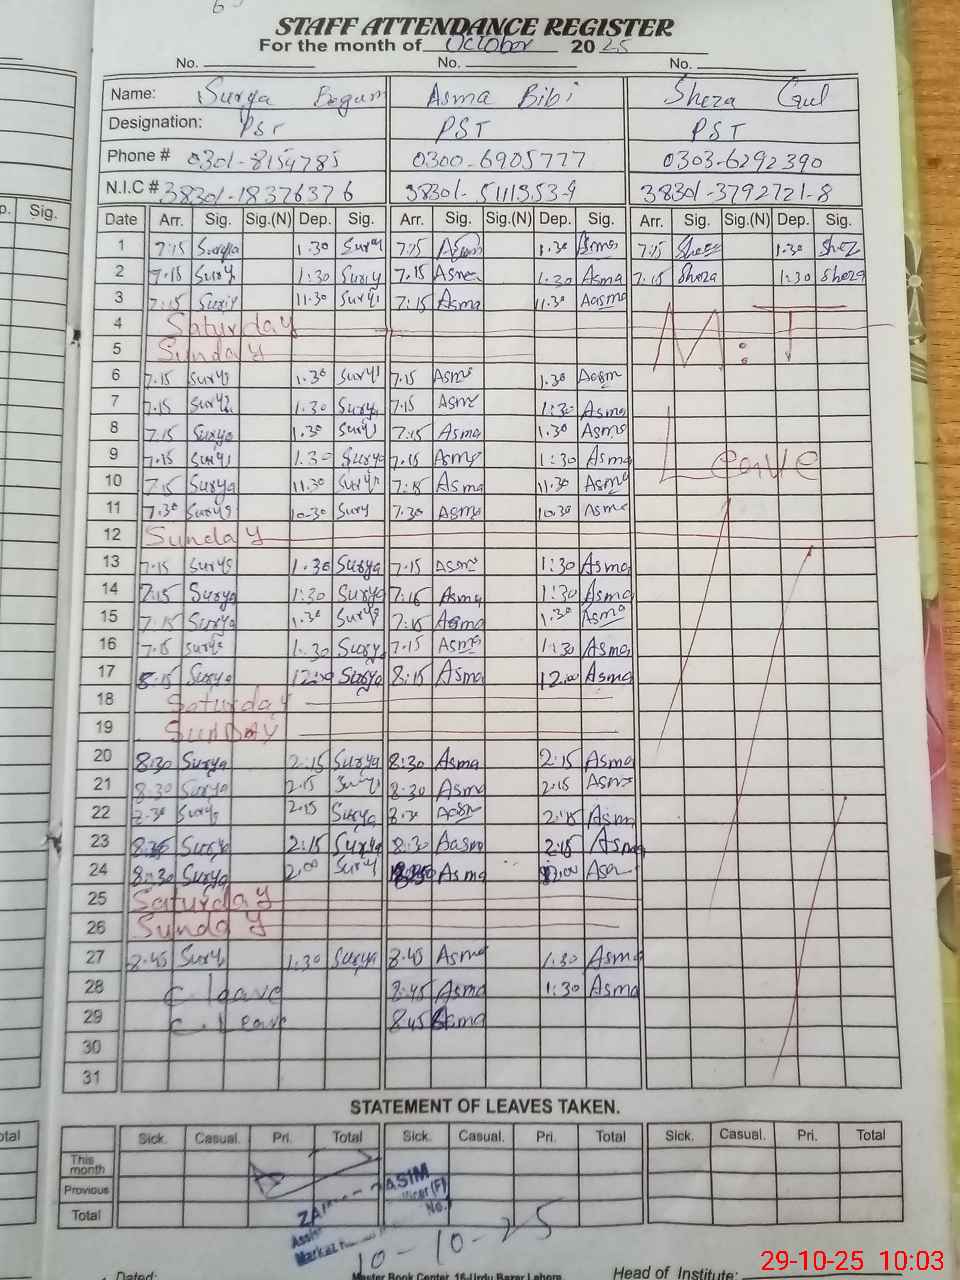 STAFF ATTENDANCE REGISTER
For the month of October 2025
No. No. No.
Name: Surya Begum Asma Bibi Sheza Gul
Designation: PST PST PST
Phone # 0301-8154785 0300-6905777 0303-6292390
N.I.C # 38301-18376376 38301-5111353-9 38301-3792721-8
p. Sig. Date Arr. Sig. Sig.(N) Dep. Sig. Arr. Sig. Sig.(N) Dep. Sig. Arr. Sig. Sig.(N) Dep. Sig.
1 7:15 Surya 1.30 Surya 7:15 Asma 1.30 Asma 7:15 Sheza 1.30 Shez
2 7.15 Sury 1:30 Suriy 7.15 Asma 1.30 Asma 7:15 Sheza 1:30 Sheza
3 7:15 Suriy 11.30 Surys 7:15 Asma 11.30 Aasma
4 Saturday M:T
5 Sunday
6 7.15 Surys 1.30 Surys 7.15 Asma 1.30 Aasm
7 7.15 Surya 1.30 Surya 7.15 Asma 1:30 Asma
8 7.15 Surya 1.30 Surys 7:15 Asma 1.30 Asma
9 7.15 Surys 1.30 Surya 7.15 Asma 1:30 Asma Leave
10 7.15 Surya 11.30 Surya 7:15 Asma 11.30 Asma
11 7.30 Surys 10.30 Sury 7.30 Asma 10.30 Asma
12 Sunday
13 7.15 Surys 1.30 Surya 7.15 Asma 1:30 Asma
14 7:15 Surya 1:30 Surya 7:15 Asma 1:30 Asma
15 7.15 Surya 1.30 Surys 7:15 Asma 1.30 Asma
16 7.15 Surys 1.30 Surya 7.15 Asma 1:30 Asma
17 8.15 Surya 12:00 Surya 8:15 Asma 12.00 Asma
18 Saturday
19 SUNDAY
20 8:30 Surya 2:15 Surya 8:30 Asma 2:15 Asma
21 8.30 Surya 2.15 Surys 8:30 Asma 2:15 Asma
22 8.30 Surys 2.15 Surya 8.30 Aasm 2:15 Asma
23 8:30 Surya 2:15 Surya 8:30 Aasma 2:15 Asma
24 8:30 Surya 2.00 Sury Asma Asa
25 Saturday
26 Sunday
27 8.45 Sury 1:30 Surya 8.45 Asma 1:30 Asma
28 C. leave 8:45 Asma 1:30 Asma
29 C. Leave 8:45 Asma
30
31
STATEMENT OF LEAVES TAKEN.
otal Sick. Casual. Pri. Total Sick. Casual. Pri. Total Sick. Casual. Pri. Total
This month
Previous
Total
ASIM
No.
10-10-25
Dated: Master Book Center, 16-Urdu Bazar Lahore. Head of Institute:
29-10-25 10:03